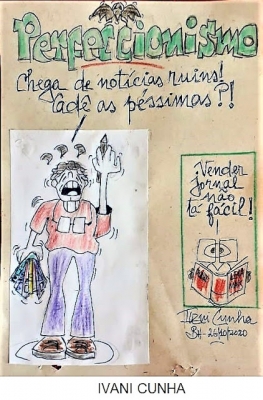 Perfeccionismo
Chega de notícias ruins!
Cadê as péssimas?!
¡Vender
jornal
não
tá fácil!
Ivani Cunha
BH-26/10/2020
IVANI CUNHA